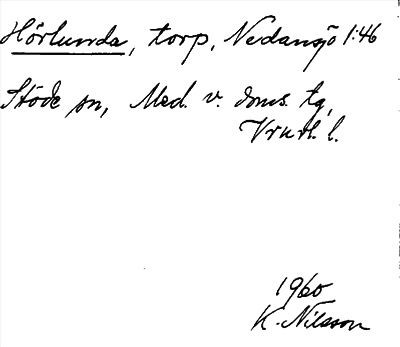 Hörlunda, torp, Nedansjö 1:46
Stöde sn, Med. v. doms. tg,
l.
1960
K. Nilsson